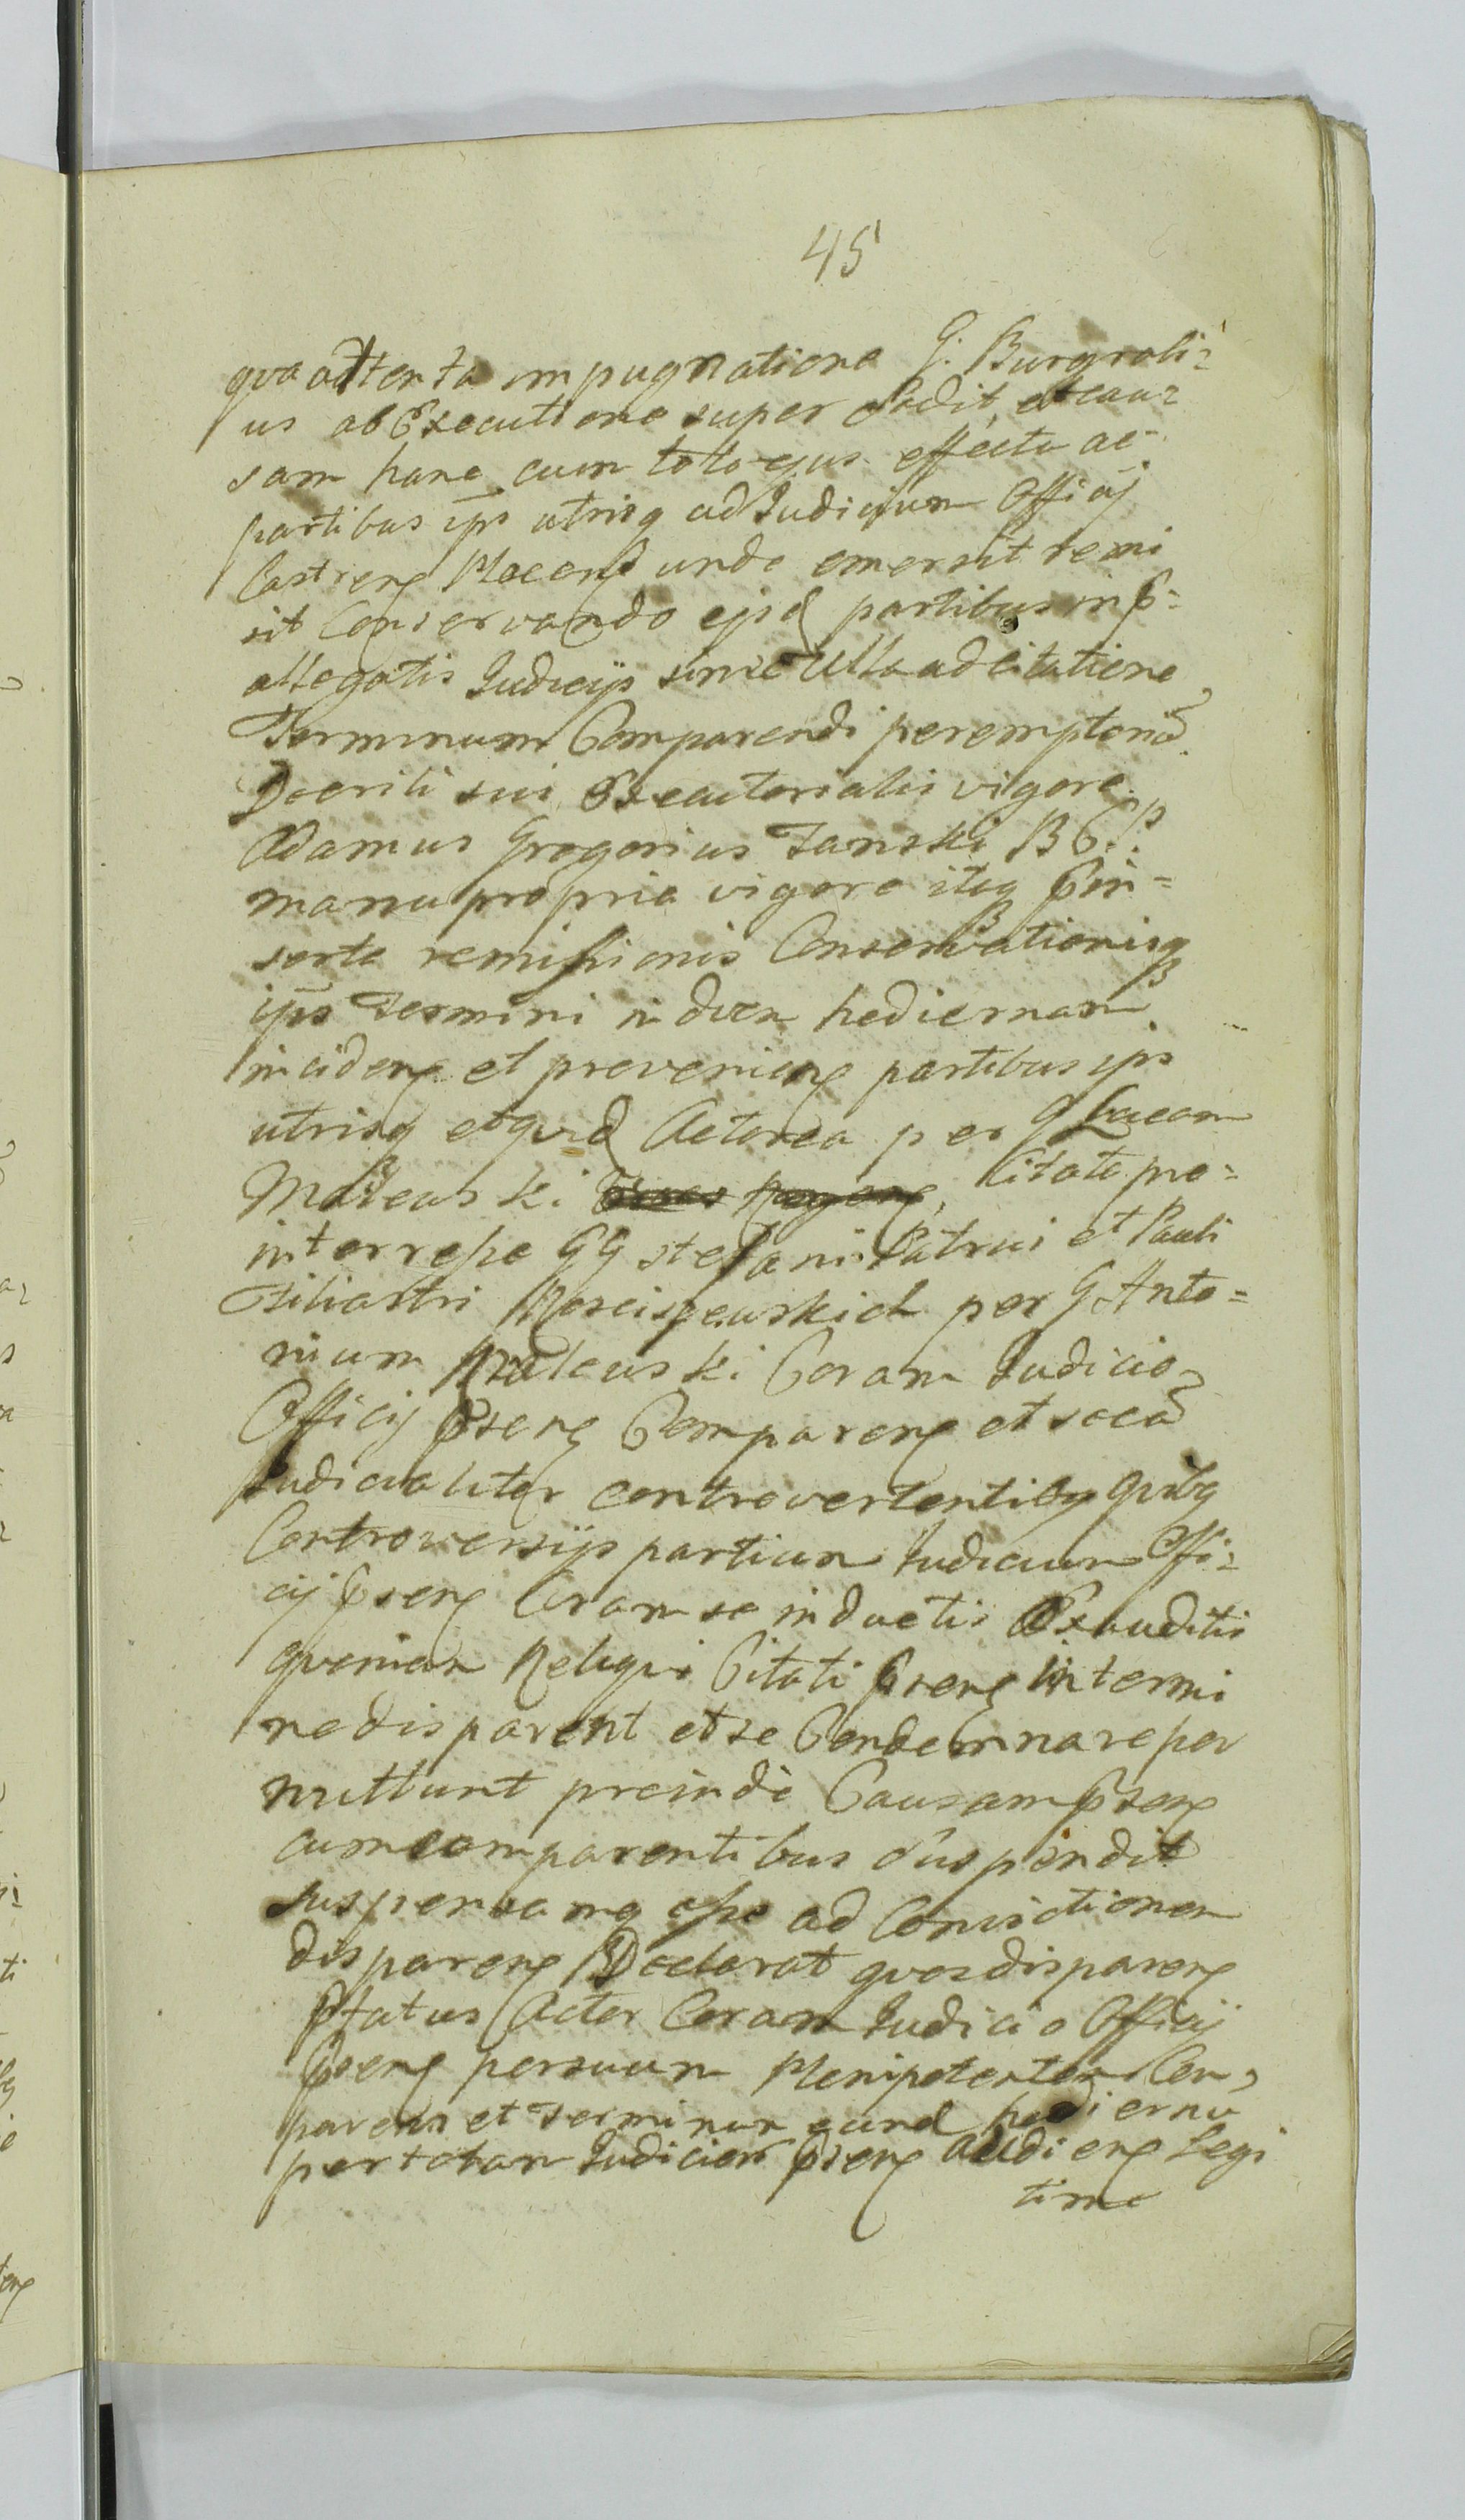 45
qva attenta impugnatione G. Burgrabi=
us ab Executione super sedit, et cau=
sam hanc cum toto ejus effectu ac
partibus ips utrisq ad Judicium Officij
Castren Plocen unde emersit remi
sit Conservando ejsd partibus in p=
allegatis Judicijs sine ulla adcitatione
Terminum Comparendi peremptoriu
Decreti sui Executorialis vigore.
Adamus Gregorius Janski B C P.
manu propria vigore itaq pin=
serta remissionis Conservationisq
ips Termini in diem hodiernam
inciden et provenien partibus ips
utrisq et qvid Actorea per G Lucam
Mateuski Citata pro=
interresse GG Stefani Patrui et Pauli
Filiastri Mosciszewskich per G Anto=
nium Mateuski Coram Judicio
Officij psen Comparen et secu
Judicialiter controvertentibq qvibq
Controversijs partium Judicium Offi=
cij psen Coram se inductis Exauditis
qvoniam Reliqvi Citati psen in termi
no disparent et se Condemnare per
mittunt proinde Causam psen
cum comparentibus suspendit
suspensamq esse ad Convictionem
disparen Declarat qvos disparen
pfatus Actor Coram Judicio Officij
psen per suum Plenipotentem Com=
parens et Terminum eund hodiernu
per totam Judicior psen audien Legi
time